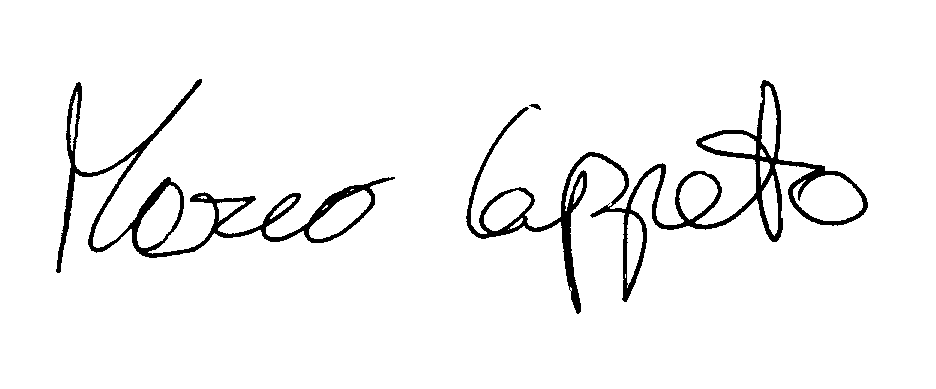 Marco Cappreto